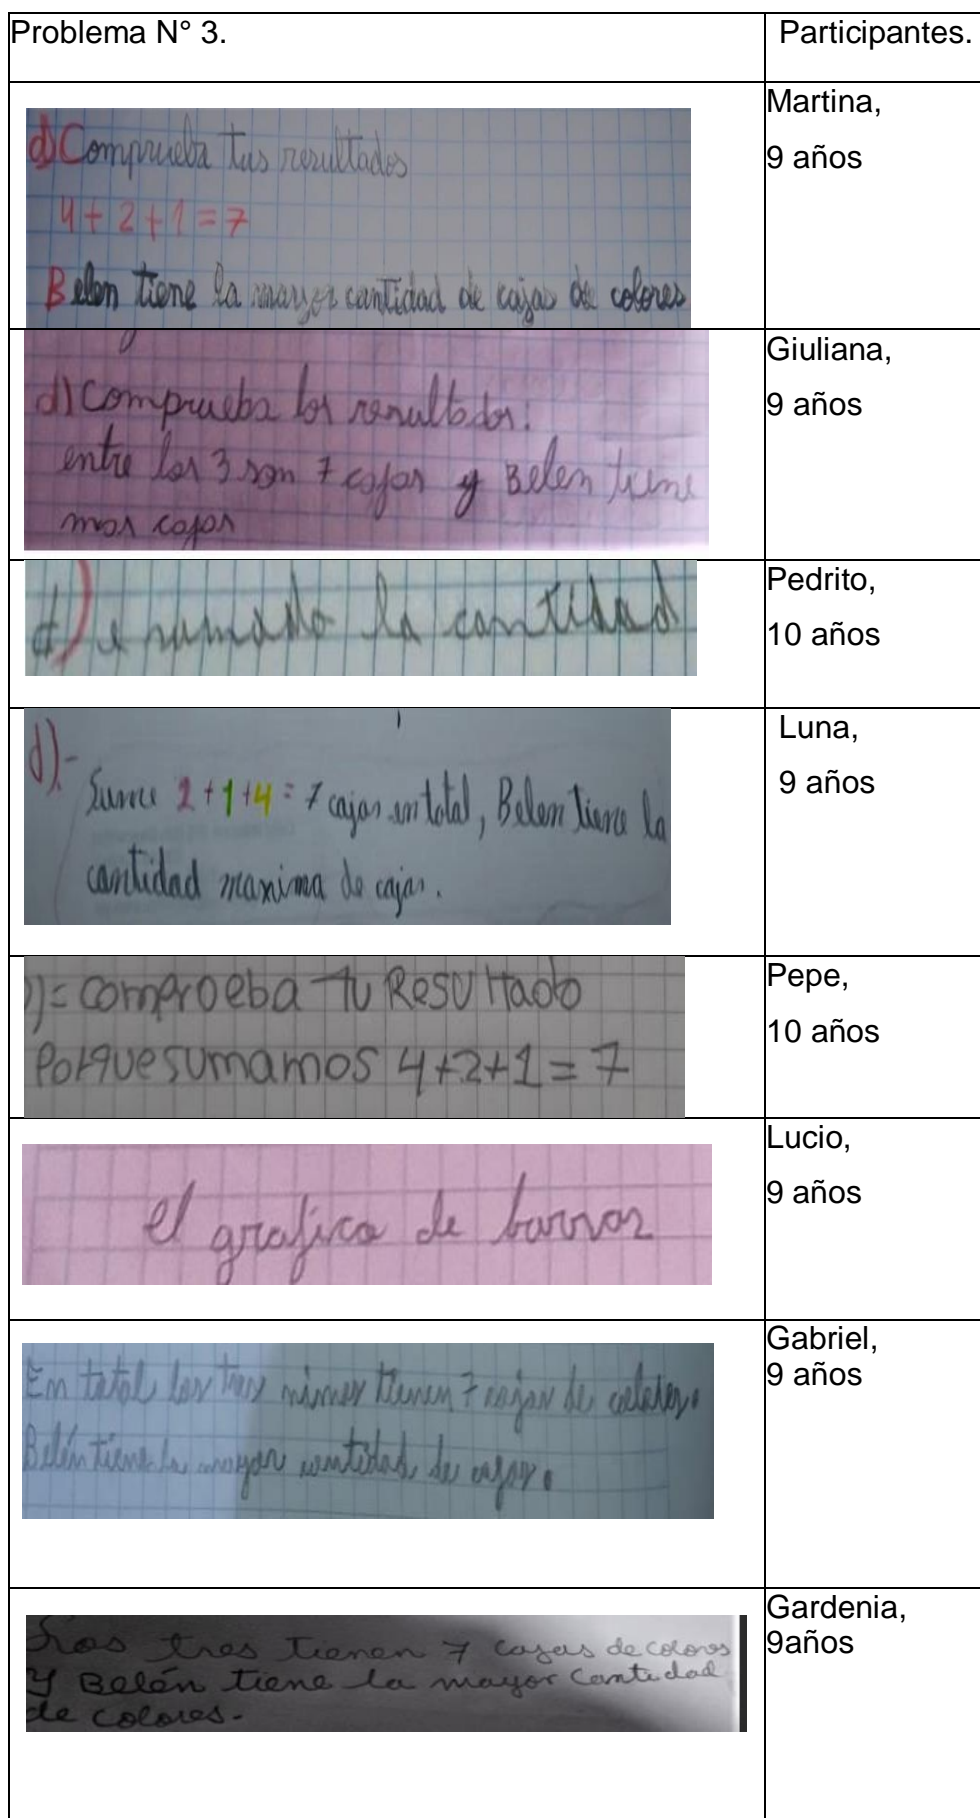 Problema N° 3.
Participantes.
d) Comprueba tus resultados
4 + 2 + 1 = 7
Belen tiene la mayor cantidad de cajas de colores
Martina,
9 años
d) Comprueba los resultados:
entre los 3 son 7 cajas y Belen tiene
mas cajas
Giuliana,
9 años
d) e sumado la cantidad
Pedrito,
10 años
d).-
Sume 2 + 1 + 4 = 7 cajas en total, Belen tiene la
cantidad maxima de cajas.
Luna,
9 años
)= comproeba tu Resultado
Porque sumamos 4+2+1=7
Pepe,
10 años
el grafico de barras
Lucio,
9 años
En total los tres niños tienen 7 cajas de colores.
Belén tiene la mayor cantidad de cajas.
Gabriel,
9 años
Los tres tienen 7 cajas de colores
y Belén tiene la mayor cantidad
de colores.
Gardenia,
9años